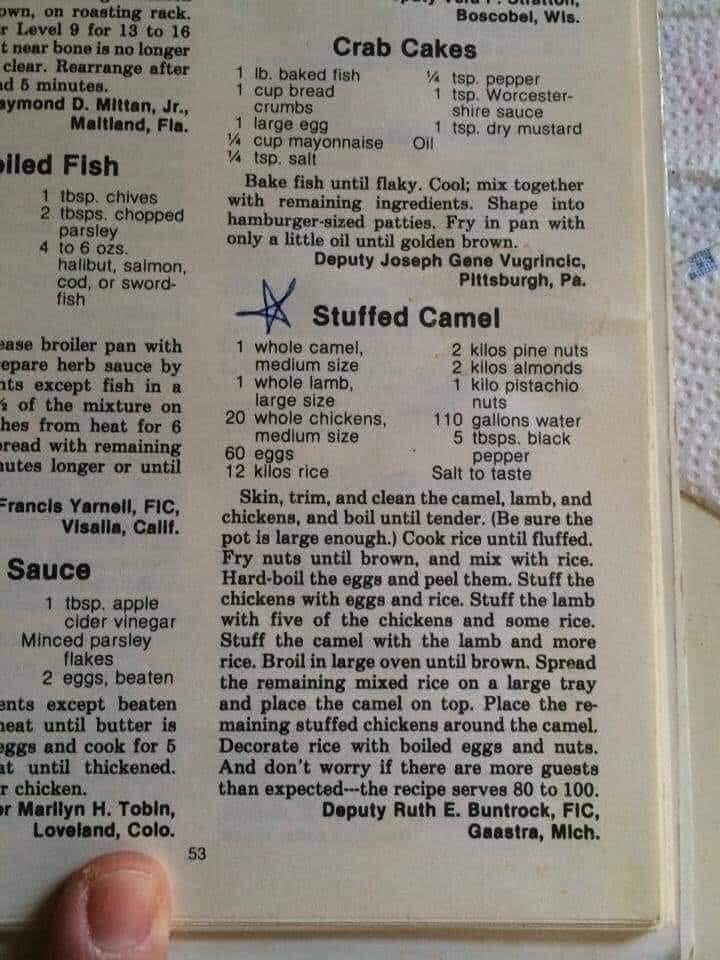 own, on roasting rack.
r Level 9 for 13 to 16
t near bone is no longer
clear. Rearrange after
d 5 minutes.
aymond D. Mittan, Jr.,
Maitland, Fla.
iled Fish
1 tbsp. chives
2 tbsps. chopped
parsley
4 to 6 ozs.
halibut, salmon,
cod, or sword-
fish
ease broiler pan with
epare herb sauce by
nts except fish in a
of the mixture on
hes from heat for 6
read with remaining
nutes longer or until
Francis Yarnell, FIC,
Visalia, Calif.
Sauce
1 tbsp. apple
cider vinegar
Minced parsley
flakes
2 eggs, beaten
ents except beaten
heat until butter is
eggs and cook for 5
at until thickened.
r chicken.
or Marilyn H. Tobin,
Loveland, Colo.
Boscobel, Wis.
Crab Cakes
1 lb. baked fish
1 cup bread
crumbs
1 large egg
¼ cup mayonnaise
¼ tsp. salt
¼ tsp. pepper
1 tsp. Worcester-
shire sauce
1 tsp. dry mustard
Oil
Bake fish until flaky. Cool; mix together
with remaining ingredients. Shape into
hamburger-sized patties. Fry in pan with
only a little oil until golden brown.
Deputy Joseph Gene Vugrincic,
Pittsburgh, Pa.
Stuffed Camel
1 whole camel,
medium size
1 whole lamb,
large size
20 whole chickens,
medium size
60 eggs
12 kilos rice
2 kilos pine nuts
2 kilos almonds
1 kilo pistachio
nuts
110 gallons water
5 tbsps. black
pepper
Salt to taste
Skin, trim, and clean the camel, lamb, and
chickens, and boil until tender. (Be sure the
pot is large enough.) Cook rice until fluffed.
Fry nuts until brown, and mix with rice.
Hard-boil the eggs and peel them. Stuff the
chickens with eggs and rice. Stuff the lamb
with five of the chickens and some rice.
Stuff the camel with the lamb and more
rice. Broil in large oven until brown. Spread
the remaining mixed rice on a large tray
and place the camel on top. Place the re-
maining stuffed chickens around the camel.
Decorate rice with boiled eggs and nuts.
And don't worry if there are more guests
than expected---the recipe serves 80 to 100.
Deputy Ruth E. Buntrock, FIC,
Gaastra, Mich.
53